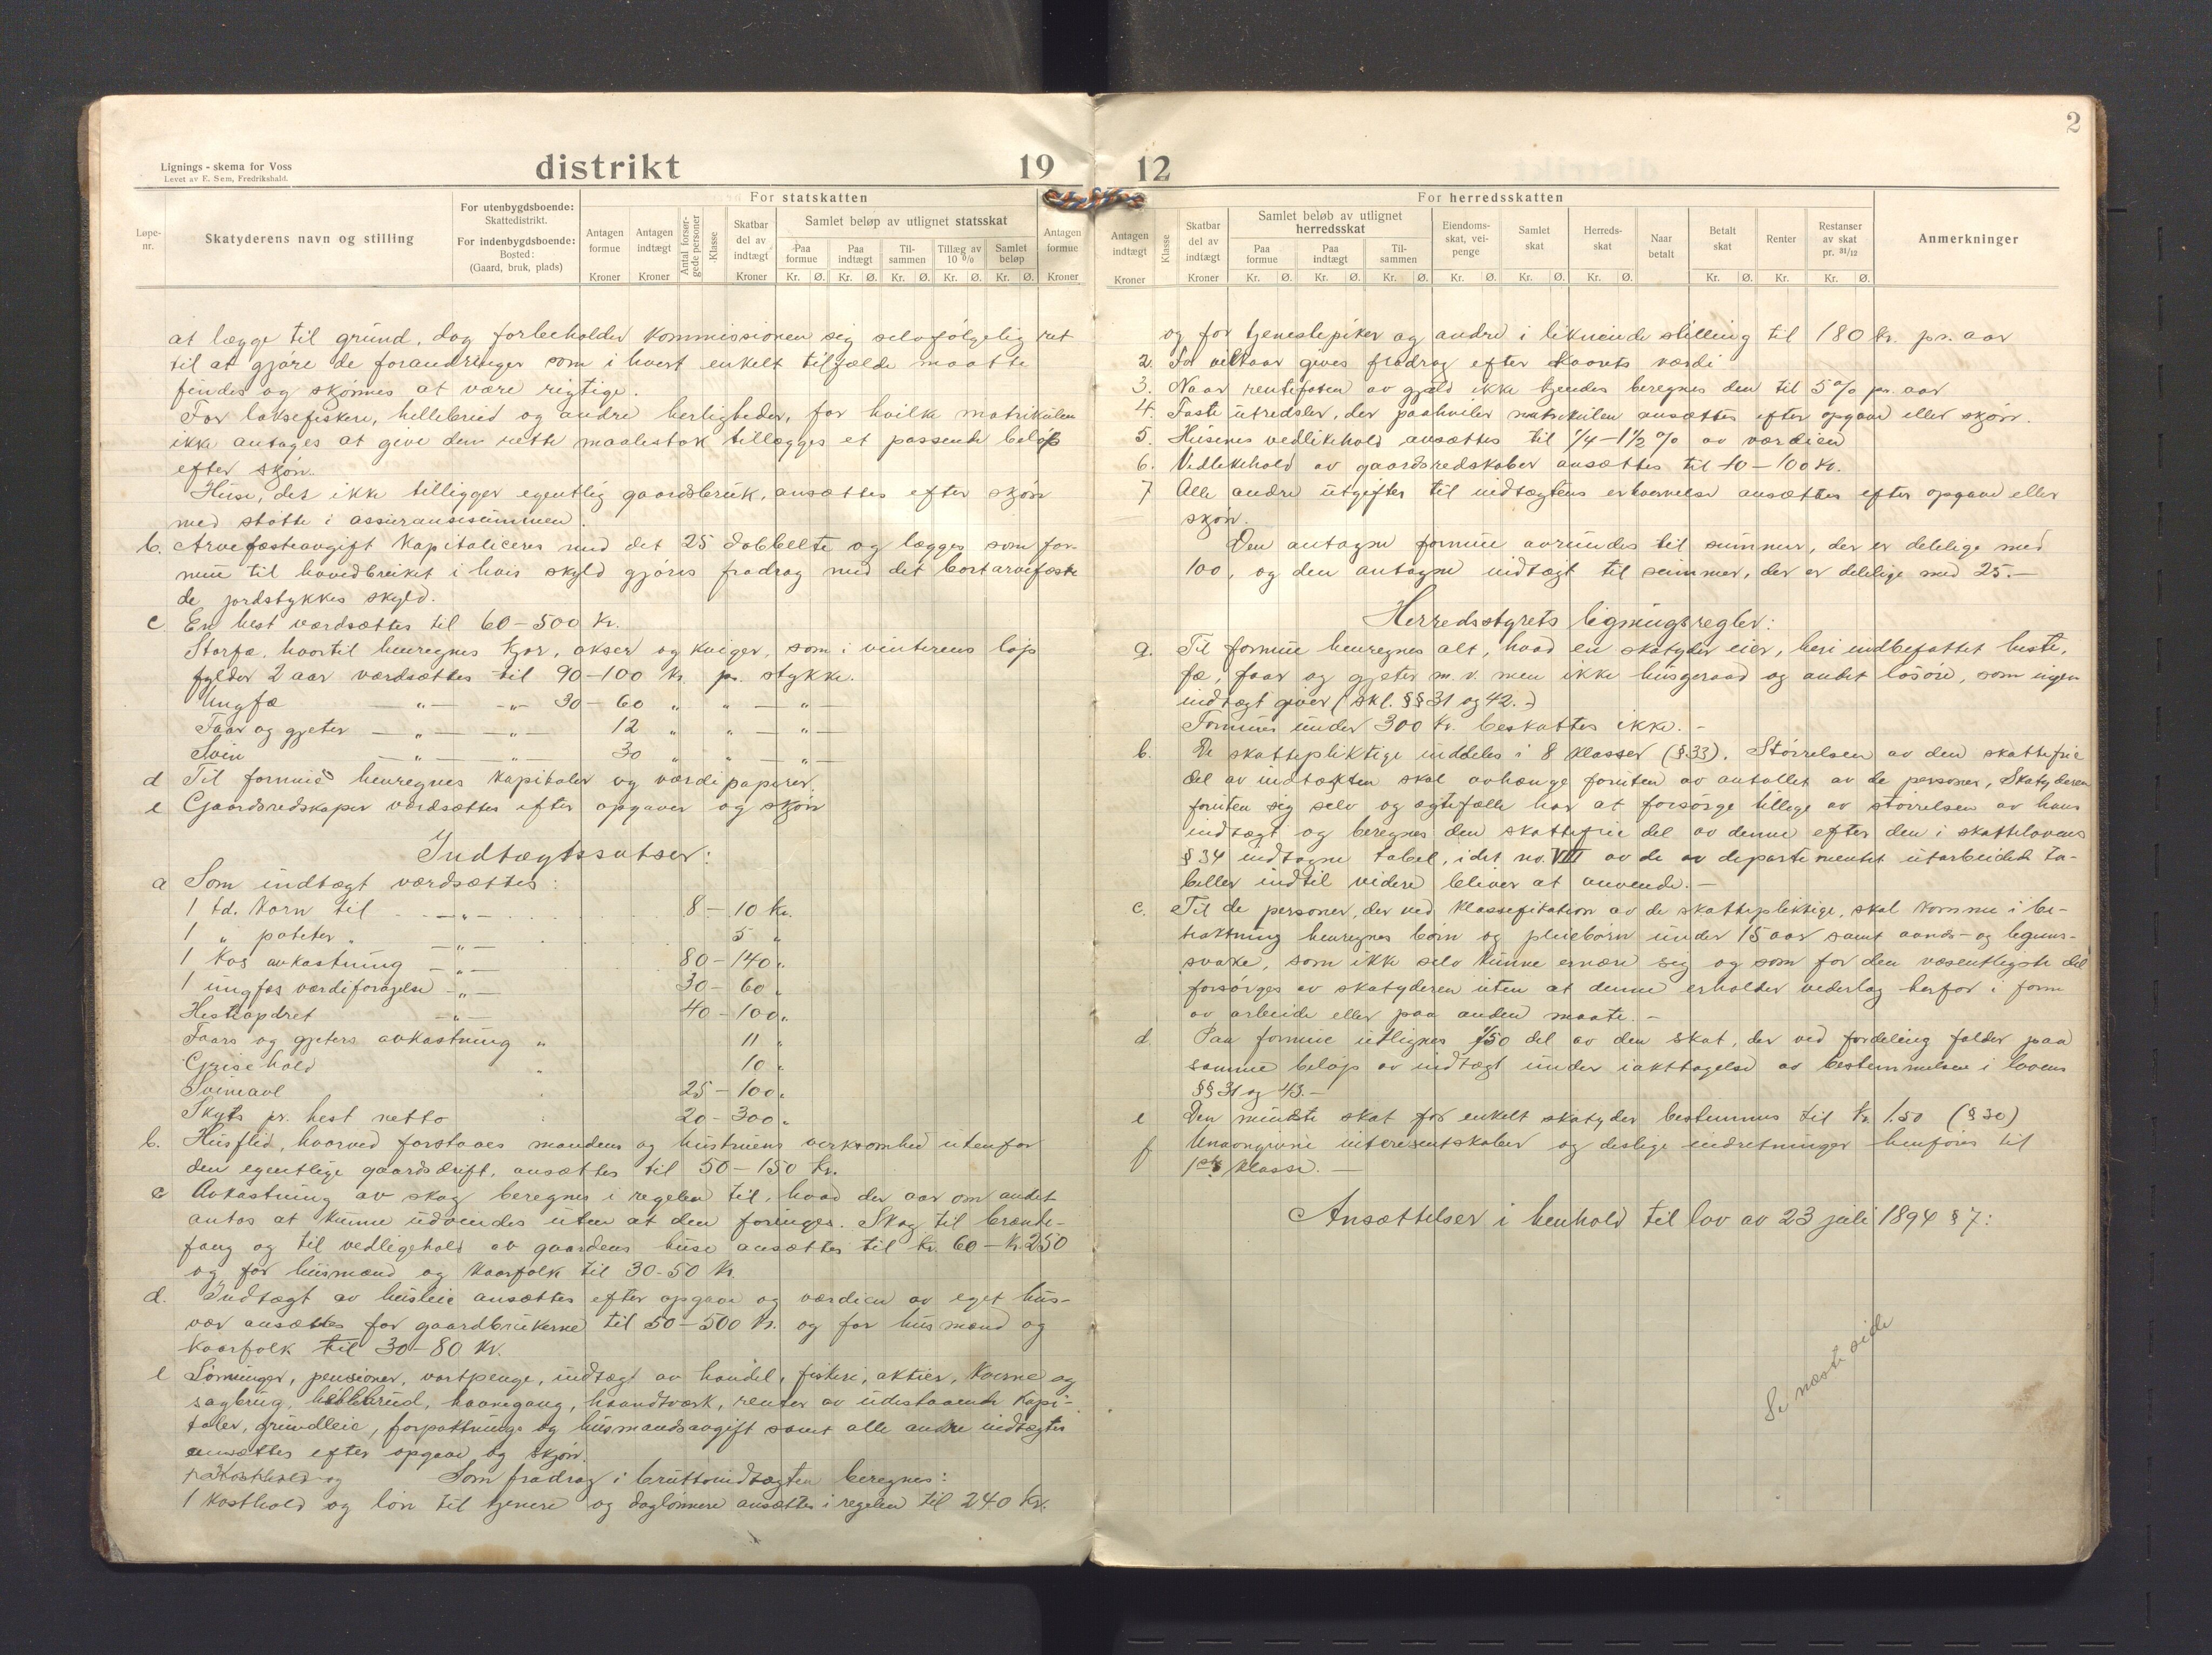 Lignings - skema for Voss
Levet av E. Sem, Fredrikshald.
distrikt
19
Løpe-nr.
Skatyderens navn og stilling
For utenbygdsboende:
Skattedistrikt.
For indenbygdsboende:
Bosted:
(Gaard, bruk, plads)
For statskatten
Antagen formue
Kroner
Antagen indtægt
Kroner
Antal forsør-gede personer
Klasse
Skatbar del av indtægt
Kroner
Samlet beløp av utlignet statsskat
Paa formue
Kr. Ø.
Paa indtægt
Kr. Ø.
Til-sammen
Kr. Ø.
Tillæg av 10 %
Kr. Ø.
Samlet beløp
Kr. Ø.
Antagen formue
Kroner
at lægge til grund, dog forbeholder kommissionen sig selvfølgelig ret
til at gjøre de forandringer som i hvert enkelt tilfælde maatte
findes og skjønnes at være rigtige.
For laksefiskeri, hellebrud og andre herligheder, for hvilke matrikulen
ikke antages at give den rette maalestok tillægges et passende beløp
efter skjøn.
Huse, der ikke tilligger egentlig gaardsbruk, ansættes efter skjøn
med støtte i assuransesummen.
b. Arvefæsteavgift kapitaliceres med det 25 dobbelte og lægges som for-
mue til hovedbruket i hvis skyld gjøres fradrag med det bortarvefæste
de jordstykkes skyld.
c. En hest værdsættes til 60 - 500 kr.
Storfæ, hvortil henregnes kjør, okser og kviger, som i vinterens løp
fylder 2 aar værdsættes til 90 - 100 kr. pr. stykke.
Ungfæ — „ — - „ - 30 - 60 „ „ — „ —
Faar og gjeter — „ — — „ — 12 „ „ — „ —
Svin — „ — — „ — 30 „ „ — „ —
d Til formue henregnes kapitaler og værdipapirer.
e Gaardsredskaper værdsættes efter opgaver og skjøn
Indtægtssatser:
a Som indtægt værdsættes:
1 td. korn til — „ — 8 - 10 kr.
1 „ poteter „ — „ — 5 „
1 kos avkastning — „ — 80 - 140 „
1 ungfæs værdiforøgelse — „ — 30 - 60 „
Hesteopdræt — „ — 40 - 100 „
Faars og gjeters avkastning „ 11 „
Grisehold „ 10 „
Svineavl 25 - 100 „
Skyts pr. hest netto 20 - 300 „
b. Husflid, hvorved forstaaes mandens og hustruens verksomhed utenfor
den egentlige gaardsdrift, ansættes til 50 - 150 kr.
c Avkastning av skog beregnes i regelen til, hvad der aar om andet
antas at kunne udvendes uten at den foringes. Skog til brænde-
fang og til vedligehold av gaardens huse ansættes til kr. 60 - kr. 250
og for husmænd og kaarfolk til 30 - 50 kr.
d. Indtægt av husleie ansættes efter opgave og værdien av eget hus-
vær ansættes for gaardbrukerne til 50 - 500 kr. og for husmænd og
kaarfolk til 30 - 80 kr.
e Lønninger, pensioner, vartpenge, indtægt av handel, fiskeri, aktier, kværne og
sagbrug, hellebrud, havnegang, haandtværk, renter av udestaaende kapi-
taler, grundleie, forpaktnings og husmandsavgift samt alle andre indtægter
ansættes efter opgave og skjøn.
Som fradrag i bruttoindtægten beregnes:
1 kosthold og løn til tjenere og daglønnere ansættes i regelen til 240 kr.
2
12
For herredsskatten
Antagen indtægt
Kroner
Klasse
Skatbar del av indtægt
Kroner
Samlet beløb av utlignet herredsskat
Paa formue
Kr. Ø.
Paa indtægt
Kr. Ø.
Til-sammen
Kr. Ø.
Eiendoms-skat, vei-penge
Kr. Ø.
Samlet skat
Kr. Ø.
Herreds-skat
Kr. Ø.
Naar betalt
Betalt skat
Kr. Ø.
Renter
Kr. Ø.
Restanser av skat pr. 31/12
Kr. Ø.
Anmerkninger
og for tjenestepiker og andre i liknende stilling til 180 kr. pr. aar
2. For vedkaar gives fradrag efter kaarets værdi
3. Naar rentefoten av gjæld ikke kjendes beregnes den til 5 % pr. aar
4. Faste utredsler, der paahviler matrikulen ansættes efter opgave eller skjøn.
5. Husenes vedlikehold ansættes til 1/4 - 1 1/2 % av værdien
6. Vedlikehold av gaardsredskaber ansættes til 10 - 100 kr.
7 Alle andre utgifter til indtægtens erhvervelse ansættes efter opgave eller
skjøn.
Den antagne formue avrundes til summer, der er delelige med
100, og den antagne indtægt til summer, der er delelige med 25. —
Herredsstyrets ligningsregler:
a. Til formue henregnes alt, hvad en skatyder eier, heri indbefattet heste,
fæ, faar og gjeter m. v. men ikke husgeraad og andet løsøre, som ingen
indtægt giver (skl. §§ 31 og 42.-)
Formuer under 300 kr. beskattes ikke. -
b. De skattepliktige inddeles i 8 klasser (§ 33). Størrelsen av den skattefrie
del av indtækten skal avhænge foruten av antallet av de personer, Skatyderen
foruten sig selv og ægtefælle har at forsørge tillige av størrelsen av hans
indtægt og beregnes den skattefrie del av denne efter den i skattelovens
§ 34 indtagne tabel, idet no. VIII av de av departementet utarbeidede ta-
beller indtil videre bliver at anvende. —
c. Til de personer, der ved klassefikation av de skattepliktige, skal komme i be-
traktning henregnes børn og pleiebørn under 15 aar samt aands- og legems-
svake, som ikke selv kunne ernære sig og som for den væsentligste del
forsørges av skatyderen uten at denne erholder vederlag herfor i form
av arbeide eller paa anden maate. —
d. Paa formue utlignes 1/50 del av den skat, der ved fordeling falder paa
samme beløp av indtægt under iakttagelse av bestemmelsen i lovens
§§ 31 og 43. —
e Den mindste skat for enkelt skatyder bestemmes til kr. 1.50 (§ 30)
f Unavngivne interesentskaber og deslige indretninger henføres til
1ste klasse. —
Ansættelser i henhold til lov av 23 juli 1894 § 7:
Se næste side